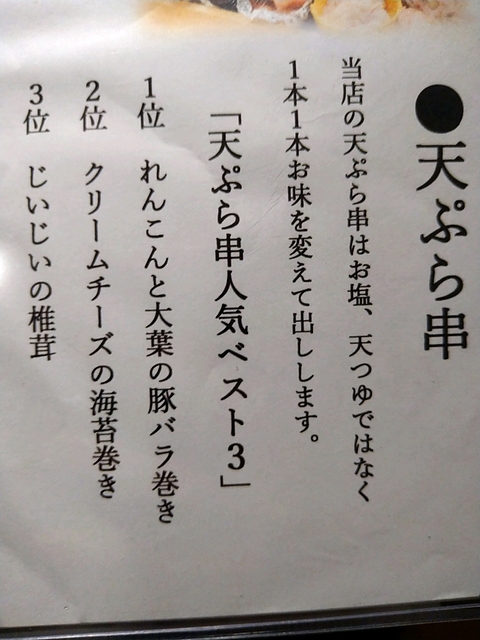 ●天ぷら串
当店の天ぷら串はお塩、天つゆではなく
1本1本お味を変えて出しします。
「天ぷら串人気ベスト3」
1位 れんこんと大葉の豚バラ巻き
2位 クリームチーズの海苔巻き
3位 じいじいの椎茸